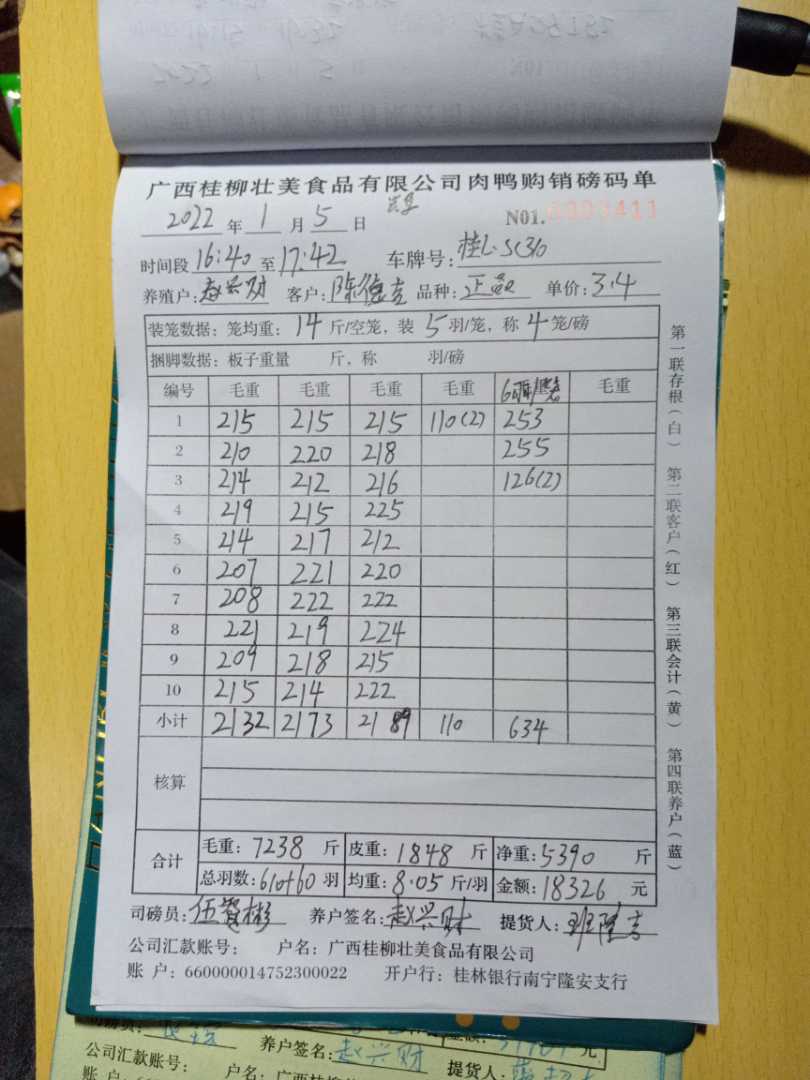 广西桂柳壮美食品有限公司肉鸭购销磅码单
2022 年 1 月 5 日 N01. 0003411
时间段 16:40 至 17:42 车牌号: 桂L·SC310
养殖户: 赵兴财 客户: 陈德吉 品种: 单价: 3.4
装笼数据: 笼均重: 14 斤/空笼, 装 5 羽/笼, 称 4 笼/磅
捆脚数据: 板子重量 斤, 称 羽/磅
编号 毛重 毛重 毛重 毛重 毛重
1 215 215 215 110(2) 253
2 210 220 218 255
3 214 212 216 126(2)
4 219 215 225
5 214 217 212
6 207 221 220
7 208 222 222
8 221 219 224
9 209 218 215
10 215 214 222
小计 2132 2173 2189 110 634
核算
合计
毛重: 7238 斤 皮重: 1848 斤 净重: 5390 斤
总羽数: 610+60 羽 均重: 8.05 斤/羽 金额: 18326 元
司磅员: 伍贤彬 养户签名: 赵兴财 提货人: 班隆吉
公司汇款账号: 户名: 广西桂柳壮美食品有限公司
账 户: 660000014752300022 开户行: 桂林银行南宁隆安支行
第一联存根(白) 第二联客户(红) 第三联会计(黄) 第四联养户(蓝)
养户签名: 赵兴财 提货人:
公司汇款账号: 户名: 广西桂柳壮美